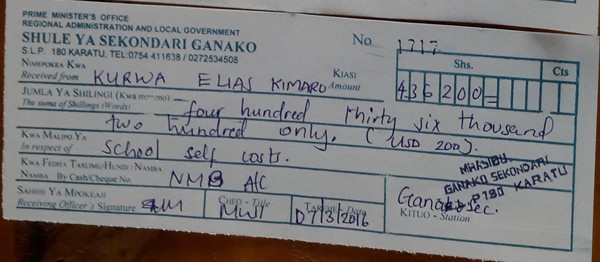 PRIME MINISTER'S OFFICE
REGIONAL ADMINISTRATION AND LOCAL GOVERNMENT
SHULE YA SEKONDARI GANAKO
S.L.P. 180 KARATU, TEL:0754 411638 / 0272534508
No 1717
NIMEPOKEA KWA
Received from KURWA ELIAS KIMARO
KIASI
Amount
Shs. Cts
436200=
JUMLA YA SHILINGI (KWA MANENO)
The suma of Shillings (Words) four hundred thirty six thousand
two hundred only, (USD 200).
KWA MALIPO YA
In respect of school self costs.
KWA FEDHA TASLIMU/HUNDI/NAMBA
NAMBA By Cash/Cheque No. NMB A/C
SAHIHI YA MPOKEAJI
Receiving Officer's Signature
CHEO - Title
TAREHE - Date
07/3/2016
Ganako Sec.
KITUO - Station
MHASIBU
GANAKO SEKONDARI
180 KARATU